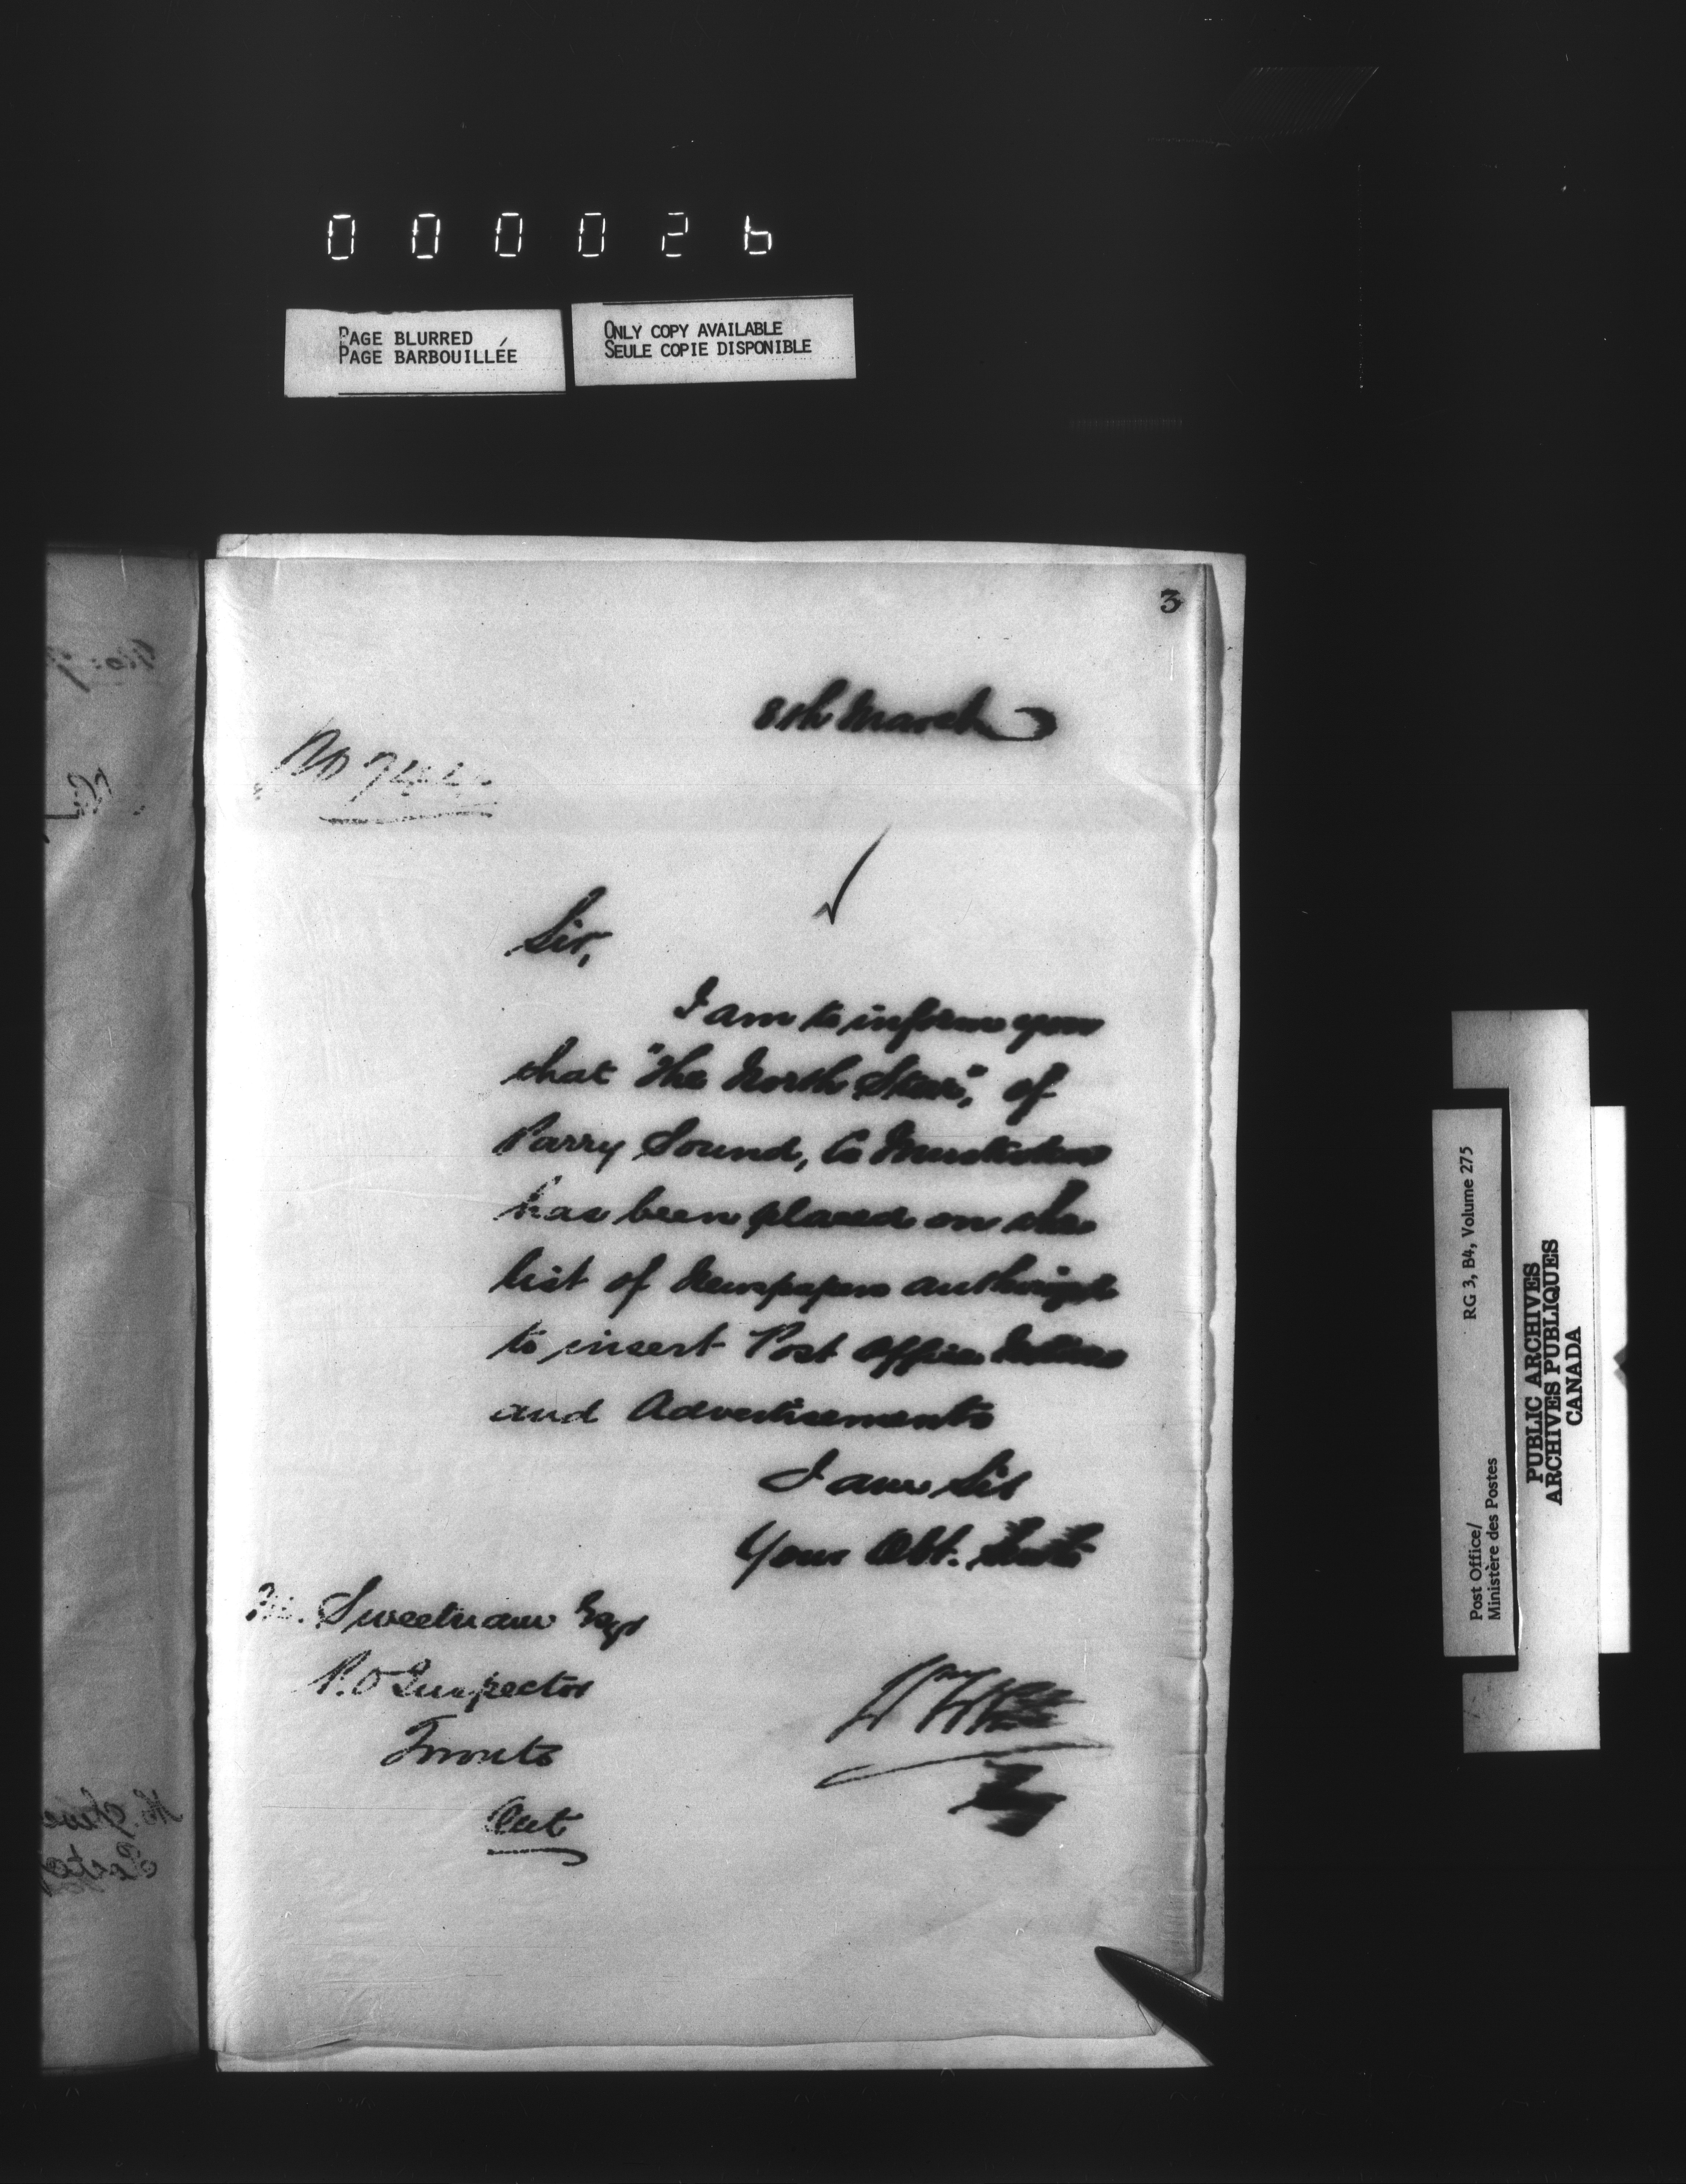 000026
PAGE BLURRED
PAGE BARBOUILLÉE
ONLY COPY AVAILABLE
SEULE COPIE DISPONIBLE
3
8th March
No
Sir,
I am to inform you
that "The North Star", of
Parry Sound, Co Muskoka
has been placed on the
list of Newspapers authorized
to insert Post Office Notices
and Advertisements
I am Sir
Your Obt. Servt
M. Sweetnam Esqr
P.O Inspector
Toronto
Ont
Post Office/
Ministère des Postes
RG 3, B4, Volume 275
PUBLIC ARCHIVES
ARCHIVES PUBLIQUES
CANADA